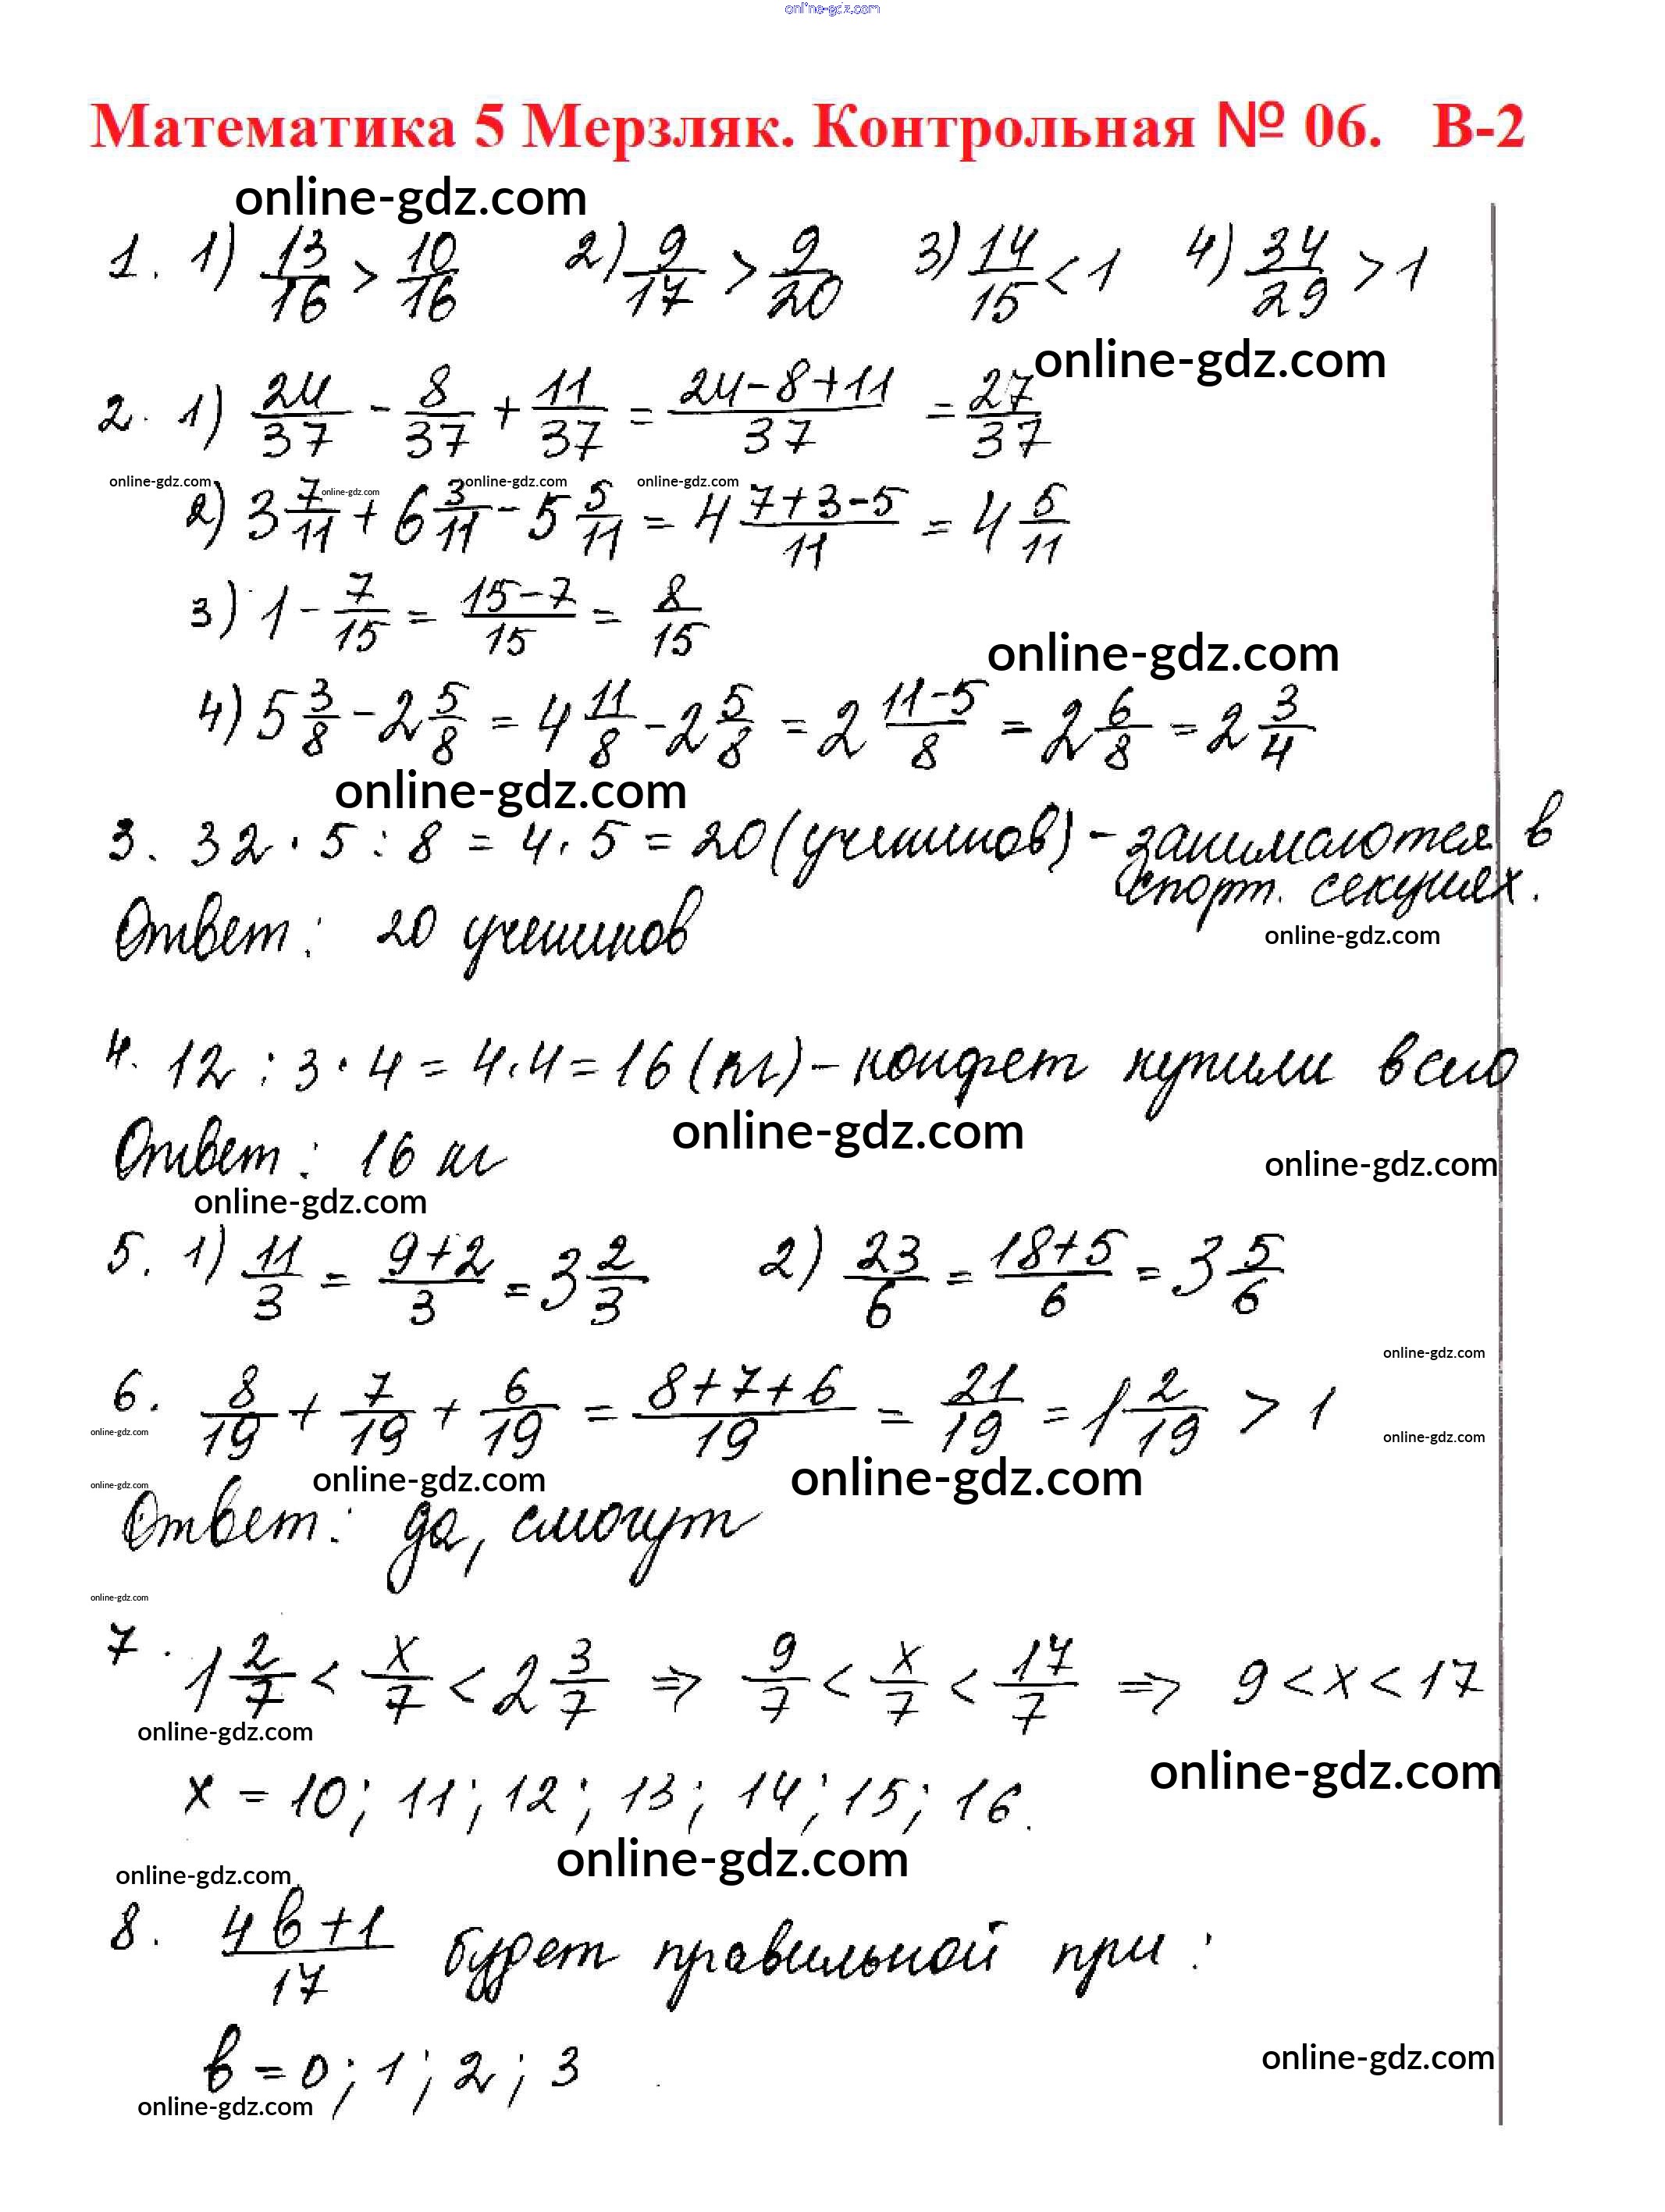 online-gdz.com
Математика 5 Мерзляк. Контрольная № 06. В-2
online-gdz.com
1. 1) 13/16 > 10/16 2) 9/17 > 9/20 3) 14/15 < 1 4) 34/29 > 1
online-gdz.com
2. 1) 24/37 - 8/37 + 11/37 = (24-8+11)/37 = 27/37
online-gdz.com online-gdz.com online-gdz.com online-gdz.com
2) 3 7/11 + 6 3/11 - 5 5/11 = 4 (7+3-5)/11 = 4 5/11
3) 1 - 7/15 = (15-7)/15 = 8/15
online-gdz.com
4) 5 3/8 - 2 5/8 = 4 11/8 - 2 5/8 = 2 (11-5)/8 = 2 6/8 = 2 3/4
online-gdz.com
3. 32 · 5 : 8 = 4 · 5 = 20 (учеников) - занимаются в
спорт. секциях.
Ответ: 20 учеников
online-gdz.com
4. 12 : 3 · 4 = 4 · 4 = 16 (кг) - конфет купили всего
online-gdz.com
Ответ: 16 кг
online-gdz.com
online-gdz.com
5. 1) 11/3 = (9+2)/3 = 3 2/3 2) 23/6 = (18+5)/6 = 3 5/6
online-gdz.com
6. 8/19 + 7/19 + 6/19 = (8+7+6)/19 = 21/19 = 1 2/19 > 1
online-gdz.com online-gdz.com
online-gdz.com online-gdz.com online-gdz.com
Ответ: да, смогут
online-gdz.com
7. 1 2/7 < x/7 < 2 3/7 => 9/7 < x/7 < 17/7 => 9 < x < 17
online-gdz.com
online-gdz.com
x = 10; 11; 12; 13; 14; 15; 16.
online-gdz.com
online-gdz.com
8. (4b+1)/17 будет правильной при:
b = 0; 1; 2; 3
online-gdz.com
online-gdz.com